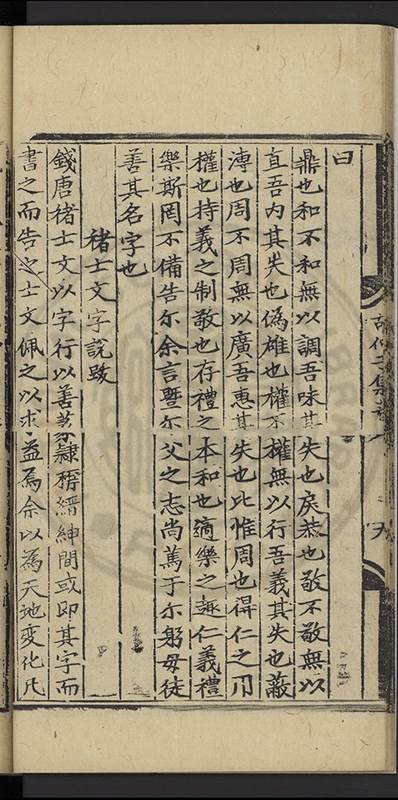 曰
鼎也和不和無以調吾味其失也戾恭也敬不敬無以
直吾内其失也偽雄也權不權無以行吾義其失也蔽
溥也周不周無以廣吾惠其失也比惟周也得仁之用
權也持義之制敬也存禮之本和也適樂之趣仁義禮
樂斯罔不備告尔余言曁尔父之志尚篤于尔躬毋徒
善其名字也
禇士文字說跋
錢唐禇士文以字行以善篆隷稱縉紳間或即其字而
書之而告之士文佩之以求益焉余以為天地變化凡